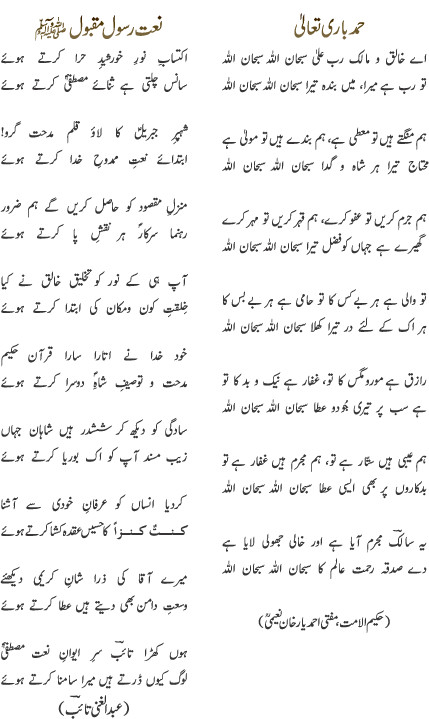 حمد باری تعالیٰ
اے خالق و مالک رب علیٰ سبحان اللہ سبحان اللہ
تو رب ہے میرا، میں بندہ تیرا سبحان اللہ سبحان اللہ
ہم منگتے ہیں تو معطی ہے، ہم بندے ہیں تو مولیٰ ہے
محتاج تیرا ہر شاہ و گدا سبحان اللہ سبحان اللہ
ہم جرم کریں تو عفو کرے، ہم قہر کریں تو مہر کرے
گھیرے ہے جہاں کو فضل تیرا سبحان اللہ سبحان اللہ
تو والی ہے ہر بے کس کا تو حامی ہے ہر بے بس کا
ہر اک کے لئے در تیرا کھلا سبحان اللہ سبحان اللہ
رازق ہے مور و مگس کا تو، غفار ہے نیک و بد کا تو
ہے سب پر تیری جُود و عطا سبحان اللہ سبحان اللہ
ہم عیبی ہیں ستّار ہے تو، ہم مجرم ہیں غفار ہے تو
بدکاروں پر بھی ایسی عطا سبحان اللہ سبحان اللہ
یہ سالکؔ مجرم آیا ہے اور خالی جھولی لایا ہے
دے صدقہ رحمت عالم کا سبحان اللہ سبحان اللہ
(حکیم الامت، مفتی احمد یار خان نعیمیؒ)
نعت رسول مقبول ﷺ
اکتساب نورِ خورشیدِ حرا کرتے ہوئے
سانس چلتی ہے ثنائے مصطفیٰؐ کرتے ہوئے
شہپرِ جبریلؑ کا لاؤ قلم مدحت گرو!
ابتدائے نعتِ ممدوحِ خدا کرتے ہوئے
منزلِ مقصود کو حاصل کریں گے ہم ضرور
رہنما سرکارؐ ہر نقشِ پا کرتے ہوئے
آپ ہی کے نور کو تخلیق خالق نے کیا
خِلقتِ کون و مکان کی ابتدا کرتے ہوئے
خود خدا نے اتارا سارا قرآن حکیم
مدحت و توصیفِ شاہِؐ دوسرا کرتے ہوئے
سادگی کو دیکھ کر ششدر ہیں شاہان جہاں
زیب مسند آپ کو اک بوریا کرتے ہوئے
کر دیا انساں کو عرفانِ خودی سے آشنا
کنتُ کنزاً کا حسیں عقدہ کشا کرتے ہوئے
میرے آقا کی ذرا شانِ کریمی دیکھئے
وسعتِ دامن بھی دیتے ہیں عطا کرتے ہوئے
ہوں کھڑا تائبؔ سرِ ایوانِ نعت مصطفیٰؐ
لوگ کیوں ڈرتے ہیں میرا سامنا کرتے ہوئے
(عبدالغنی تائبؔ)